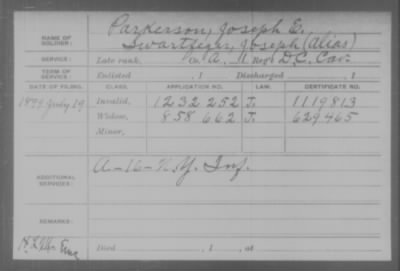 NAME OF SOLDIER: Parkerson, Joseph E.
Swartfeger, Joseph (alias)
SERVICE: Late rank, Co. A, 1 Reg't D.C. Cav.
TERM OF SERVICE: Enlisted , 1 Discharged , 1
DATE OF FILING. CLASS. APPLICATION NO. LAW. CERTIFICATE NO.
1899 July 19 Invalid, 1232252 J. 1119813
Widow, 858662 J. 629465
Minor,
ADDITIONAL SERVICES: A-16-N.Y. Inf.
REMARKS:
Died , 1 , at